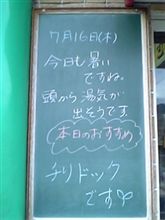 7月16日(木)
今日も暑い
ですね。
頭から湯気が
出そうです
本日のおすすめ
チリドック
です♡